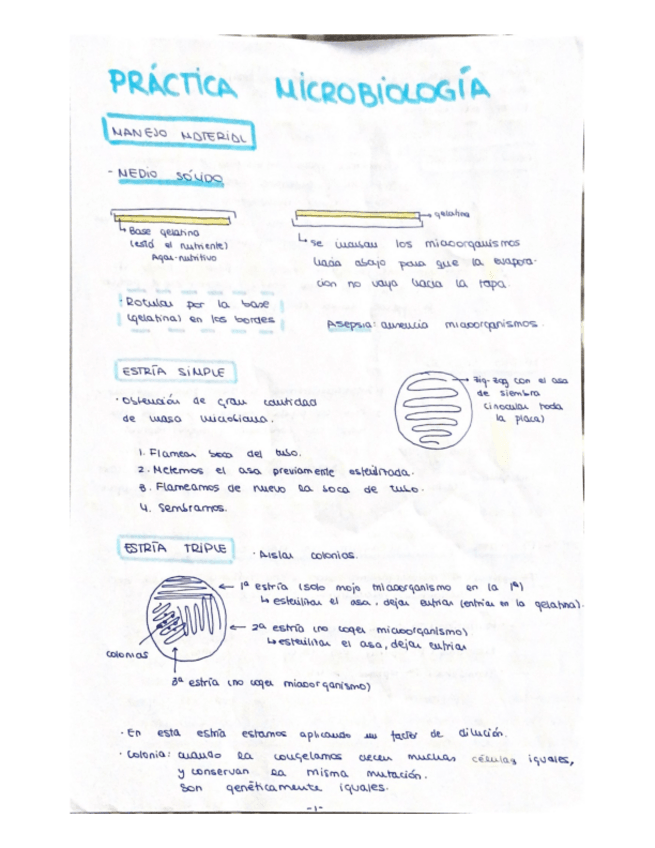 PRÁCTICA MICROBIOLOGÍA
MANEJO MATERIAL
- MEDIO SÓLIDO
↳ Base gelatina
(está el nutriente)
Agar-nutritivo
→ gelatina
↳ se incuban los microorganismos
hacia abajo para que la evapora-
ción no vaya hacia la tapa.
· Rotular por la base
(gelatina) en los bordes
Asepsia: ausencia microorganismos.
ESTRÍA SIMPLE
· Obtención de gran cantidad
de masa microbiana.
→ zig-zag con el asa
de siembra
(inocular toda
la placa)
1. Flamear boca del tubo.
2. Metemos el asa previamente esterilizada.
3. Flameamos de nuevo la boca de tubo.
4. Sembramos.
ESTRÍA TRIPLE
· Aislar colonias.
← 1ª estría (solo mojo microorganismo en la 1ª)
↳ esterilizar el asa, dejar enfriar (enfriar en la gelatina).
← 2ª estría (no coger microorganismo)
↳ esterilizar el asa, dejar enfriar
colonias
3ª estría (no coger microorganismo)
· En esta estría estamos aplicando un factor de dilución.
· Colonia: cuando la congelamos crecen muchas células iguales,
y conservan la misma mutación.
Son genéticamente iguales.
-1-